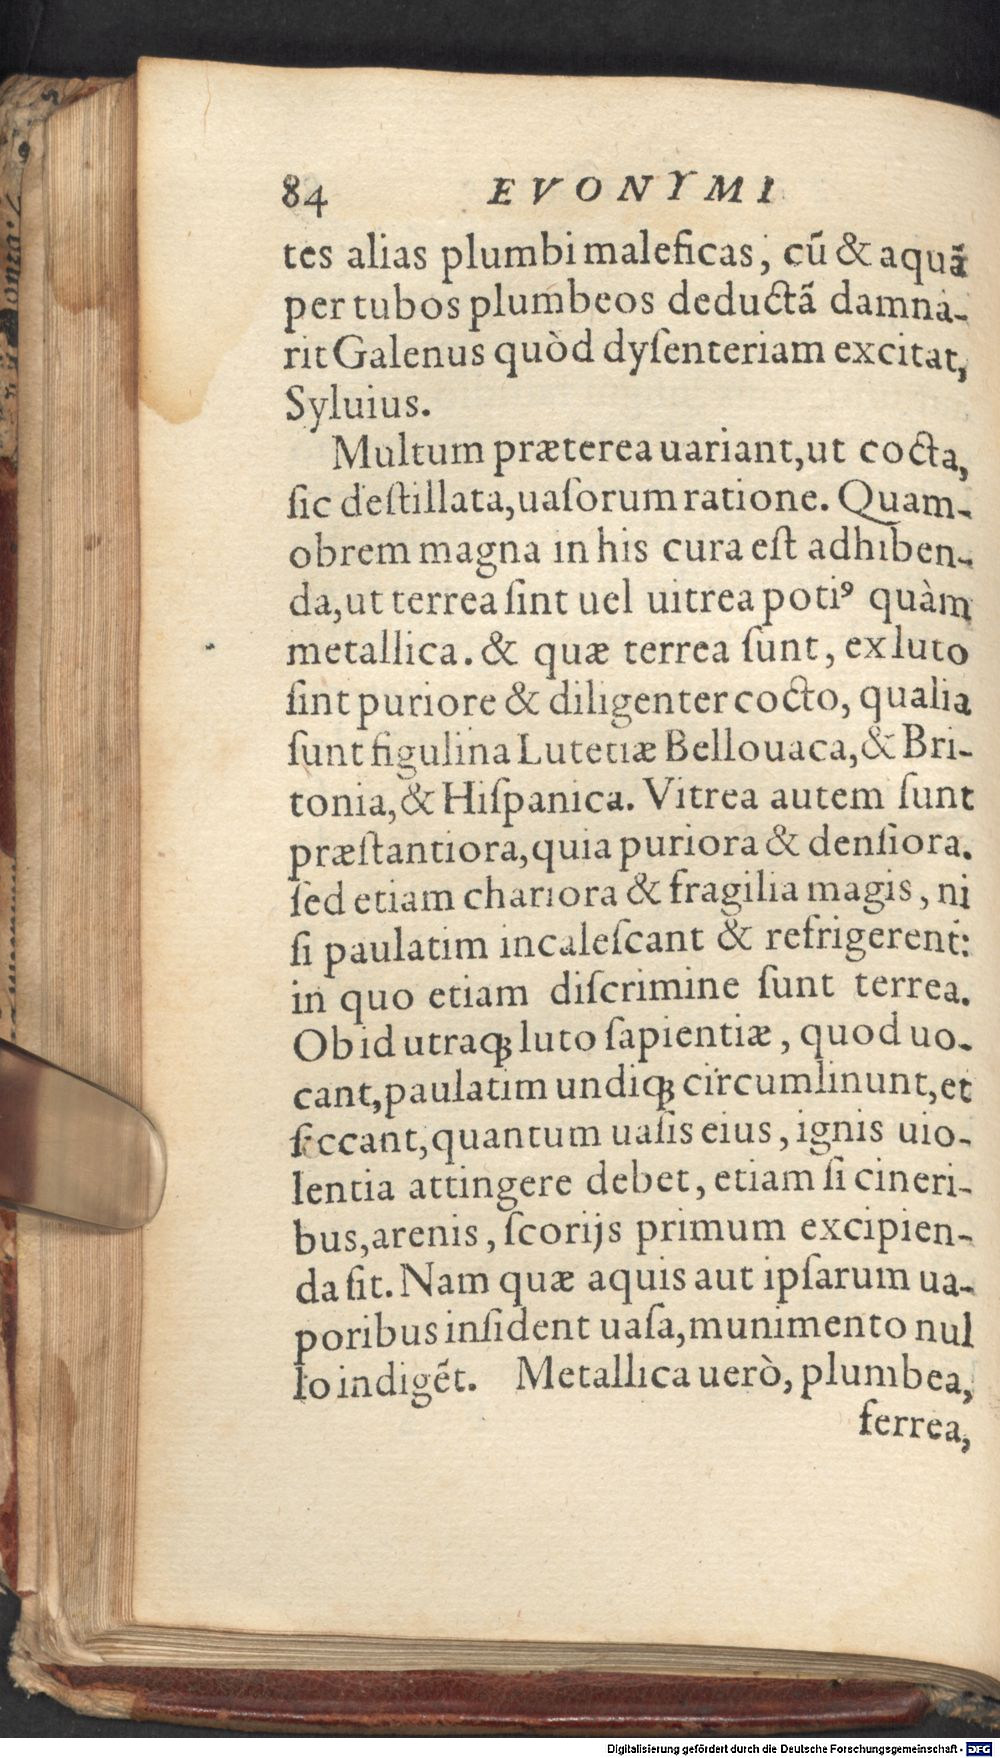 84 EVONYMI
tes alias plumbi maleficas, cũ & aquã
per tubos plumbeos deductã damna-
rit Galenus quòd dyſenteriam excitat,
Syluius.
Multum præterea uariant, ut cocta,
ſic deſtillata, uaſorum ratione. Quam-
obrem magna in his cura eſt adhiben-
da, ut terrea ſint uel uitrea potiꝰ quàm
metallica. & quæ terrea ſunt, ex luto
ſint puriore & diligenter cocto, qualia
ſunt figulina Lutetiæ Bellouaca, & Bri-
tonia, & Hiſpanica. Vitrea autem ſunt
præſtantiora, quia puriora & denſiora.
ſed etiam chariora & fragilia magis, ni
ſi paulatim incaleſcant & refrigerent:
in quo etiam diſcrimine ſunt terrea.
Ob id utraqꝫ luto ſapientiæ, quod uo-
cant, paulatim undiqꝫ circumlinunt, et
ſiccant, quantum uaſis eius, ignis uio-
lentia attingere debet, etiam ſi cineri-
bus, arenis, ſcorijs primum excipien-
da ſit. Nam quæ aquis aut ipſarum ua-
poribus inſident uaſa, munimento nul
lo indigẽt. Metallica uerò, plumbea,
ferrea,
Digitalisierung gefördert durch die Deutsche Forschungsgemeinschaft - DFG